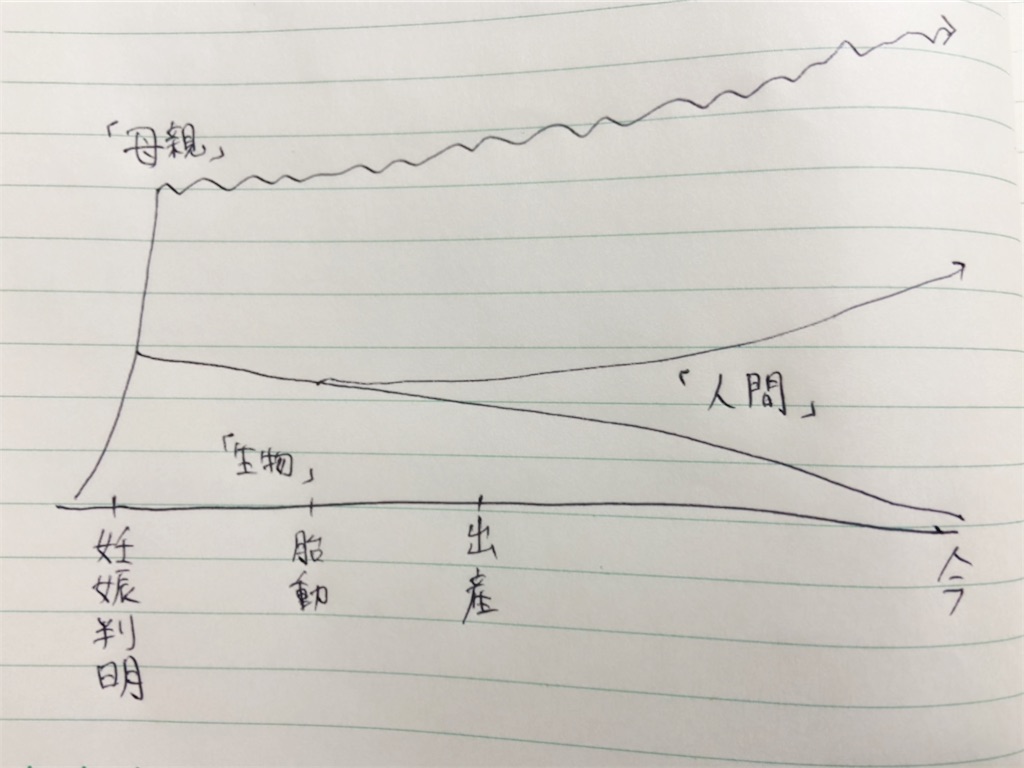 「母親」
「人間」
「生物」
妊娠判明
胎動
出産
今